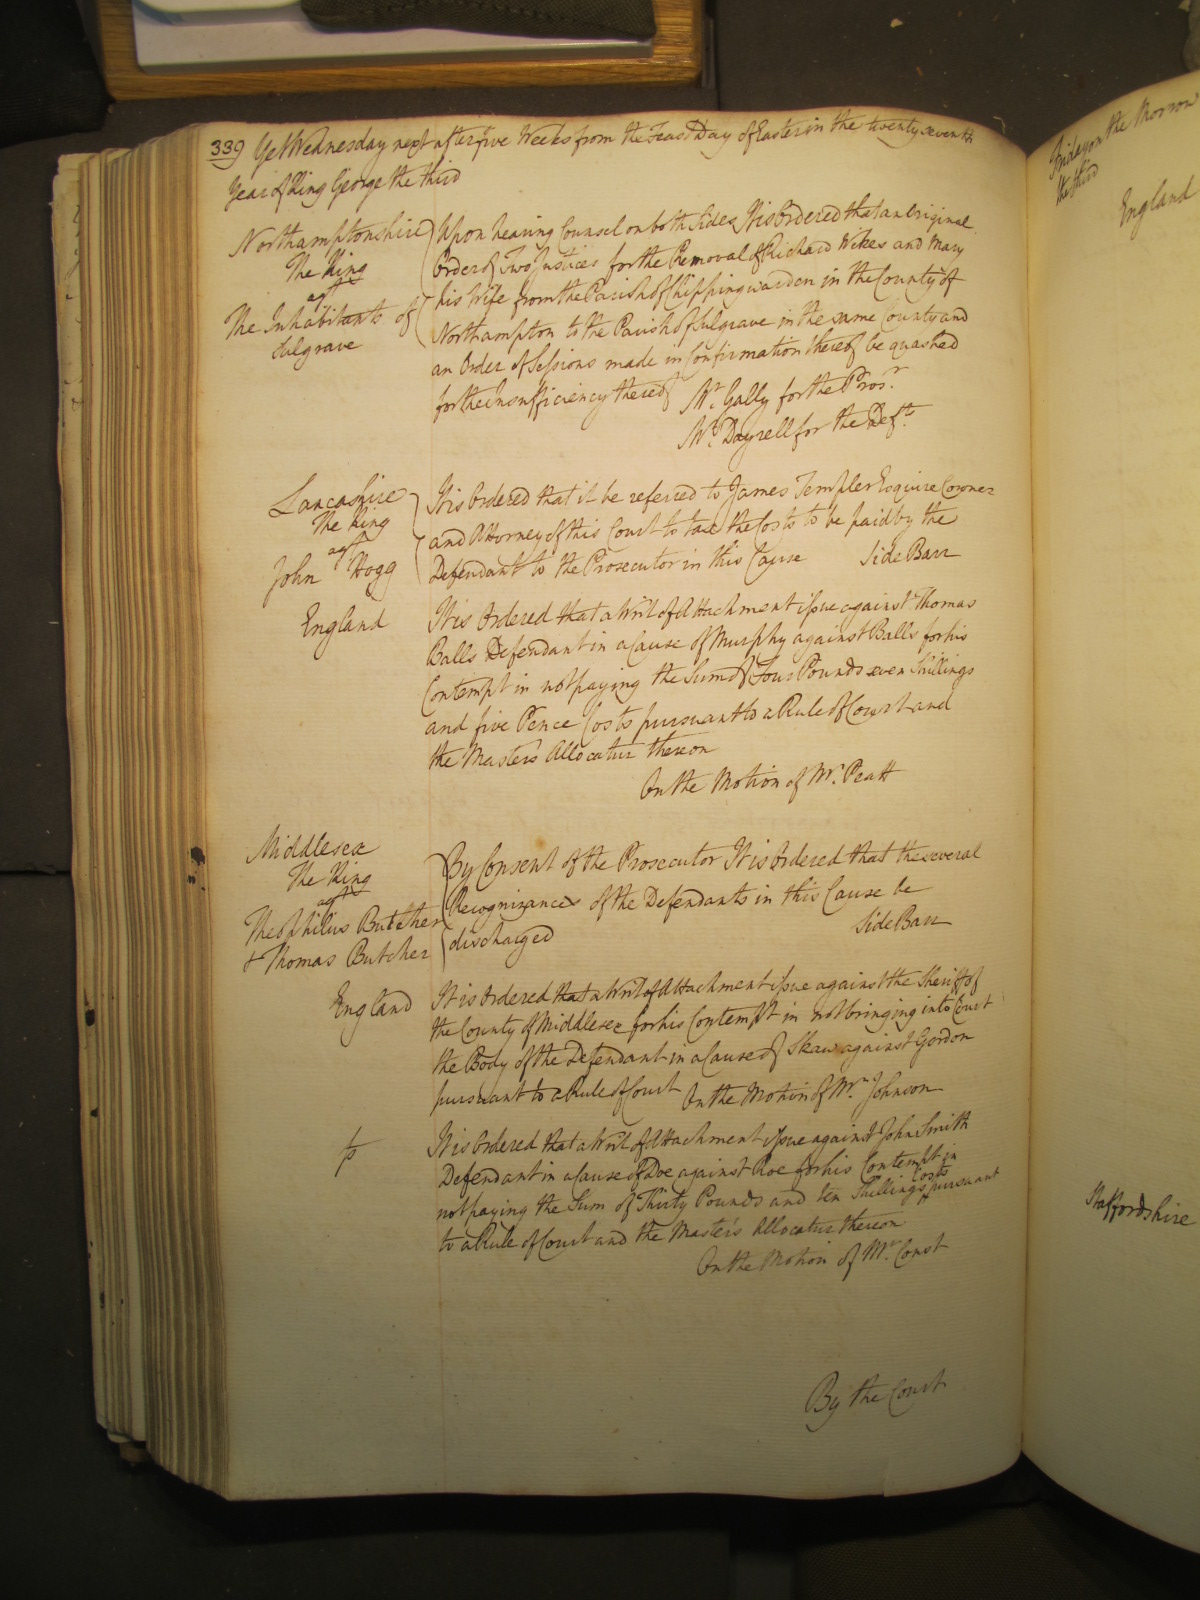 339 Yet Wednesday next after five Weeks from the Feast Day of Easter in the twenty seventh
Year of King George the third
Northamptonshire
The King
agt
The Inhabitants of
Sulgrave
Upon hearing Counsel on both Sides It is Ordered that an Original
Order of Two Justices for the Removal of Richard Wikes and Mary
his Wife from the Parish of Chippingwarden in the County of
Northampton to the Parish of Sulgrave in the same County and
an Order of Sessions made in Confirmation thereof be quashed
for the Insufficiency thereof
Mr. Gally for the Prosr.
Mr. Dayrell for the Defts.
Lancashire
The King
agt
John Hogg
It is Ordered that it be referred to James Templer Esquire Coroner
and Attorney of this Court to tax the Costs to be paid by the
Defendant to the Prosecutor in this Cause Side Barr
England
It is Ordered that a Writ of Attachment issue against Thomas
Balls Defendant in a Cause of Murphy against Balls for his
Contempt in not paying the Sum of Four Pounds seven Shillings
and five Pence Costs pursuant to a Rule of Court and
the Master's Allocatur thereon
On the Motion of Mr. Peatt
Middlesex
The King
agt
Theophilus Butcher
& Thomas Butcher
By Consent of the Prosecutor It is Ordered that the several
Recognizances of the Defendants in this Cause be
discharged Side Barr
England
It is Ordered that a Writ of Attachment issue against the Sheriff of
the County of Middlesex for his Contempt in not bringing into Court
the Body of the Defendant in a Cause of Skaw against Gordon
pursuant to a Rule of Court On the Motion of Mr. Johnson
It is Ordered that a Writ of Attachment issue against John Smith
Defendant in a Cause of Doe against Roe for his Contempt in
not paying the Sum of Thirty Pounds and ten Shillings Costs pursuant
to a Rule of Court and the Master's Allocatur thereon
On the Motion of Mr. Const
By the Court
Friday on the Morrow
the third
England
Staffordshire